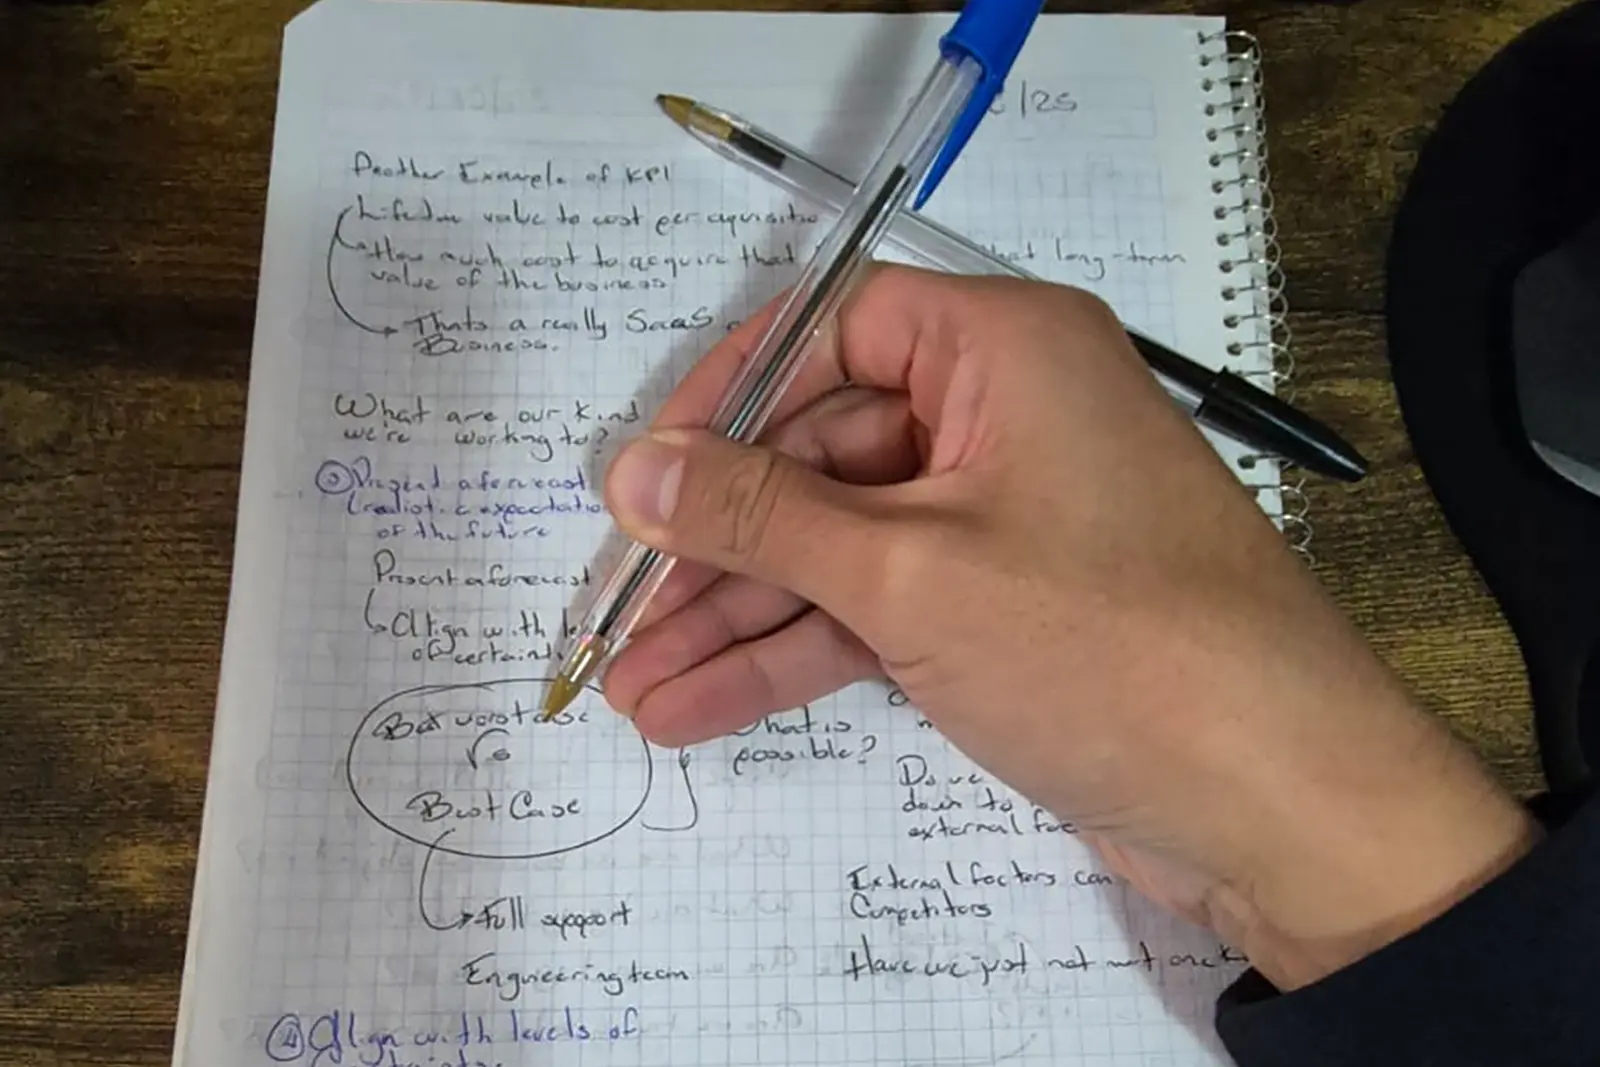 /25
Another Example of KPI
Lifetime value to cost per aquisitio
How much cost to acquire that
that long-term
value of the business
Thats a really SaaS
Business.
What are our kind
we're working to?
③ Present a forecast
(realistic expectatio
of the future
Present a forecast
Align with le
of certaint
But worst case
VS
Best Case
What is
possible?
Do we
down to
external fac
Full support
External factors can
Competitors
Engineering team
Have we just not met one k
④ Align with levels of